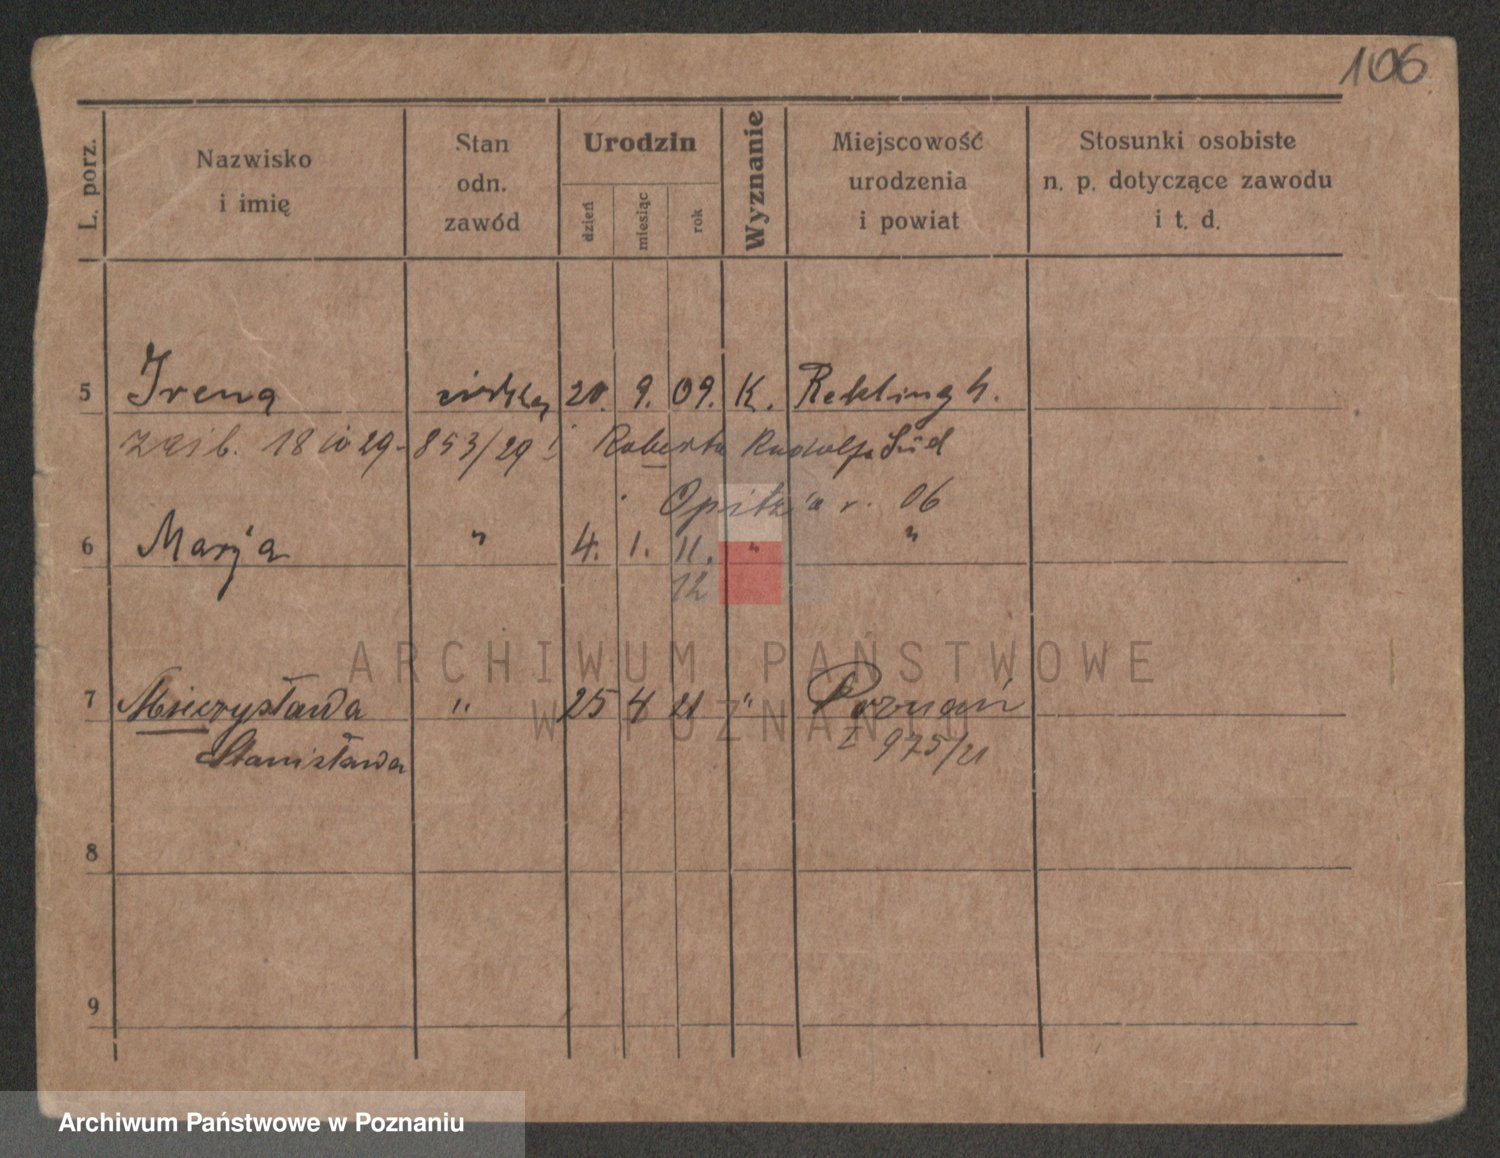 106
L. porz.
Nazwisko
i imię
Stan
odn.
zawód
Urodzin
dzień
miesiąc
rok
Wyznanie
Miejscowość
urodzenia
i powiat
Stosunki osobiste
n. p. dotyczące zawodu
i t. d.
5 Irena 20. 9. 09. K. Rekling h.
18 29 - 853/29 Roberta Rudolfa
Opitz'a r. 06
6 Marja " 4. 1. 11. " "
12
ARCHIWUM PAŃSTWOWE
W POZNANIU
7 Mieczysława " 25 4 21 " Poznań
Stanisława 975/21
8
9
Archiwum Państwowe w Poznaniu